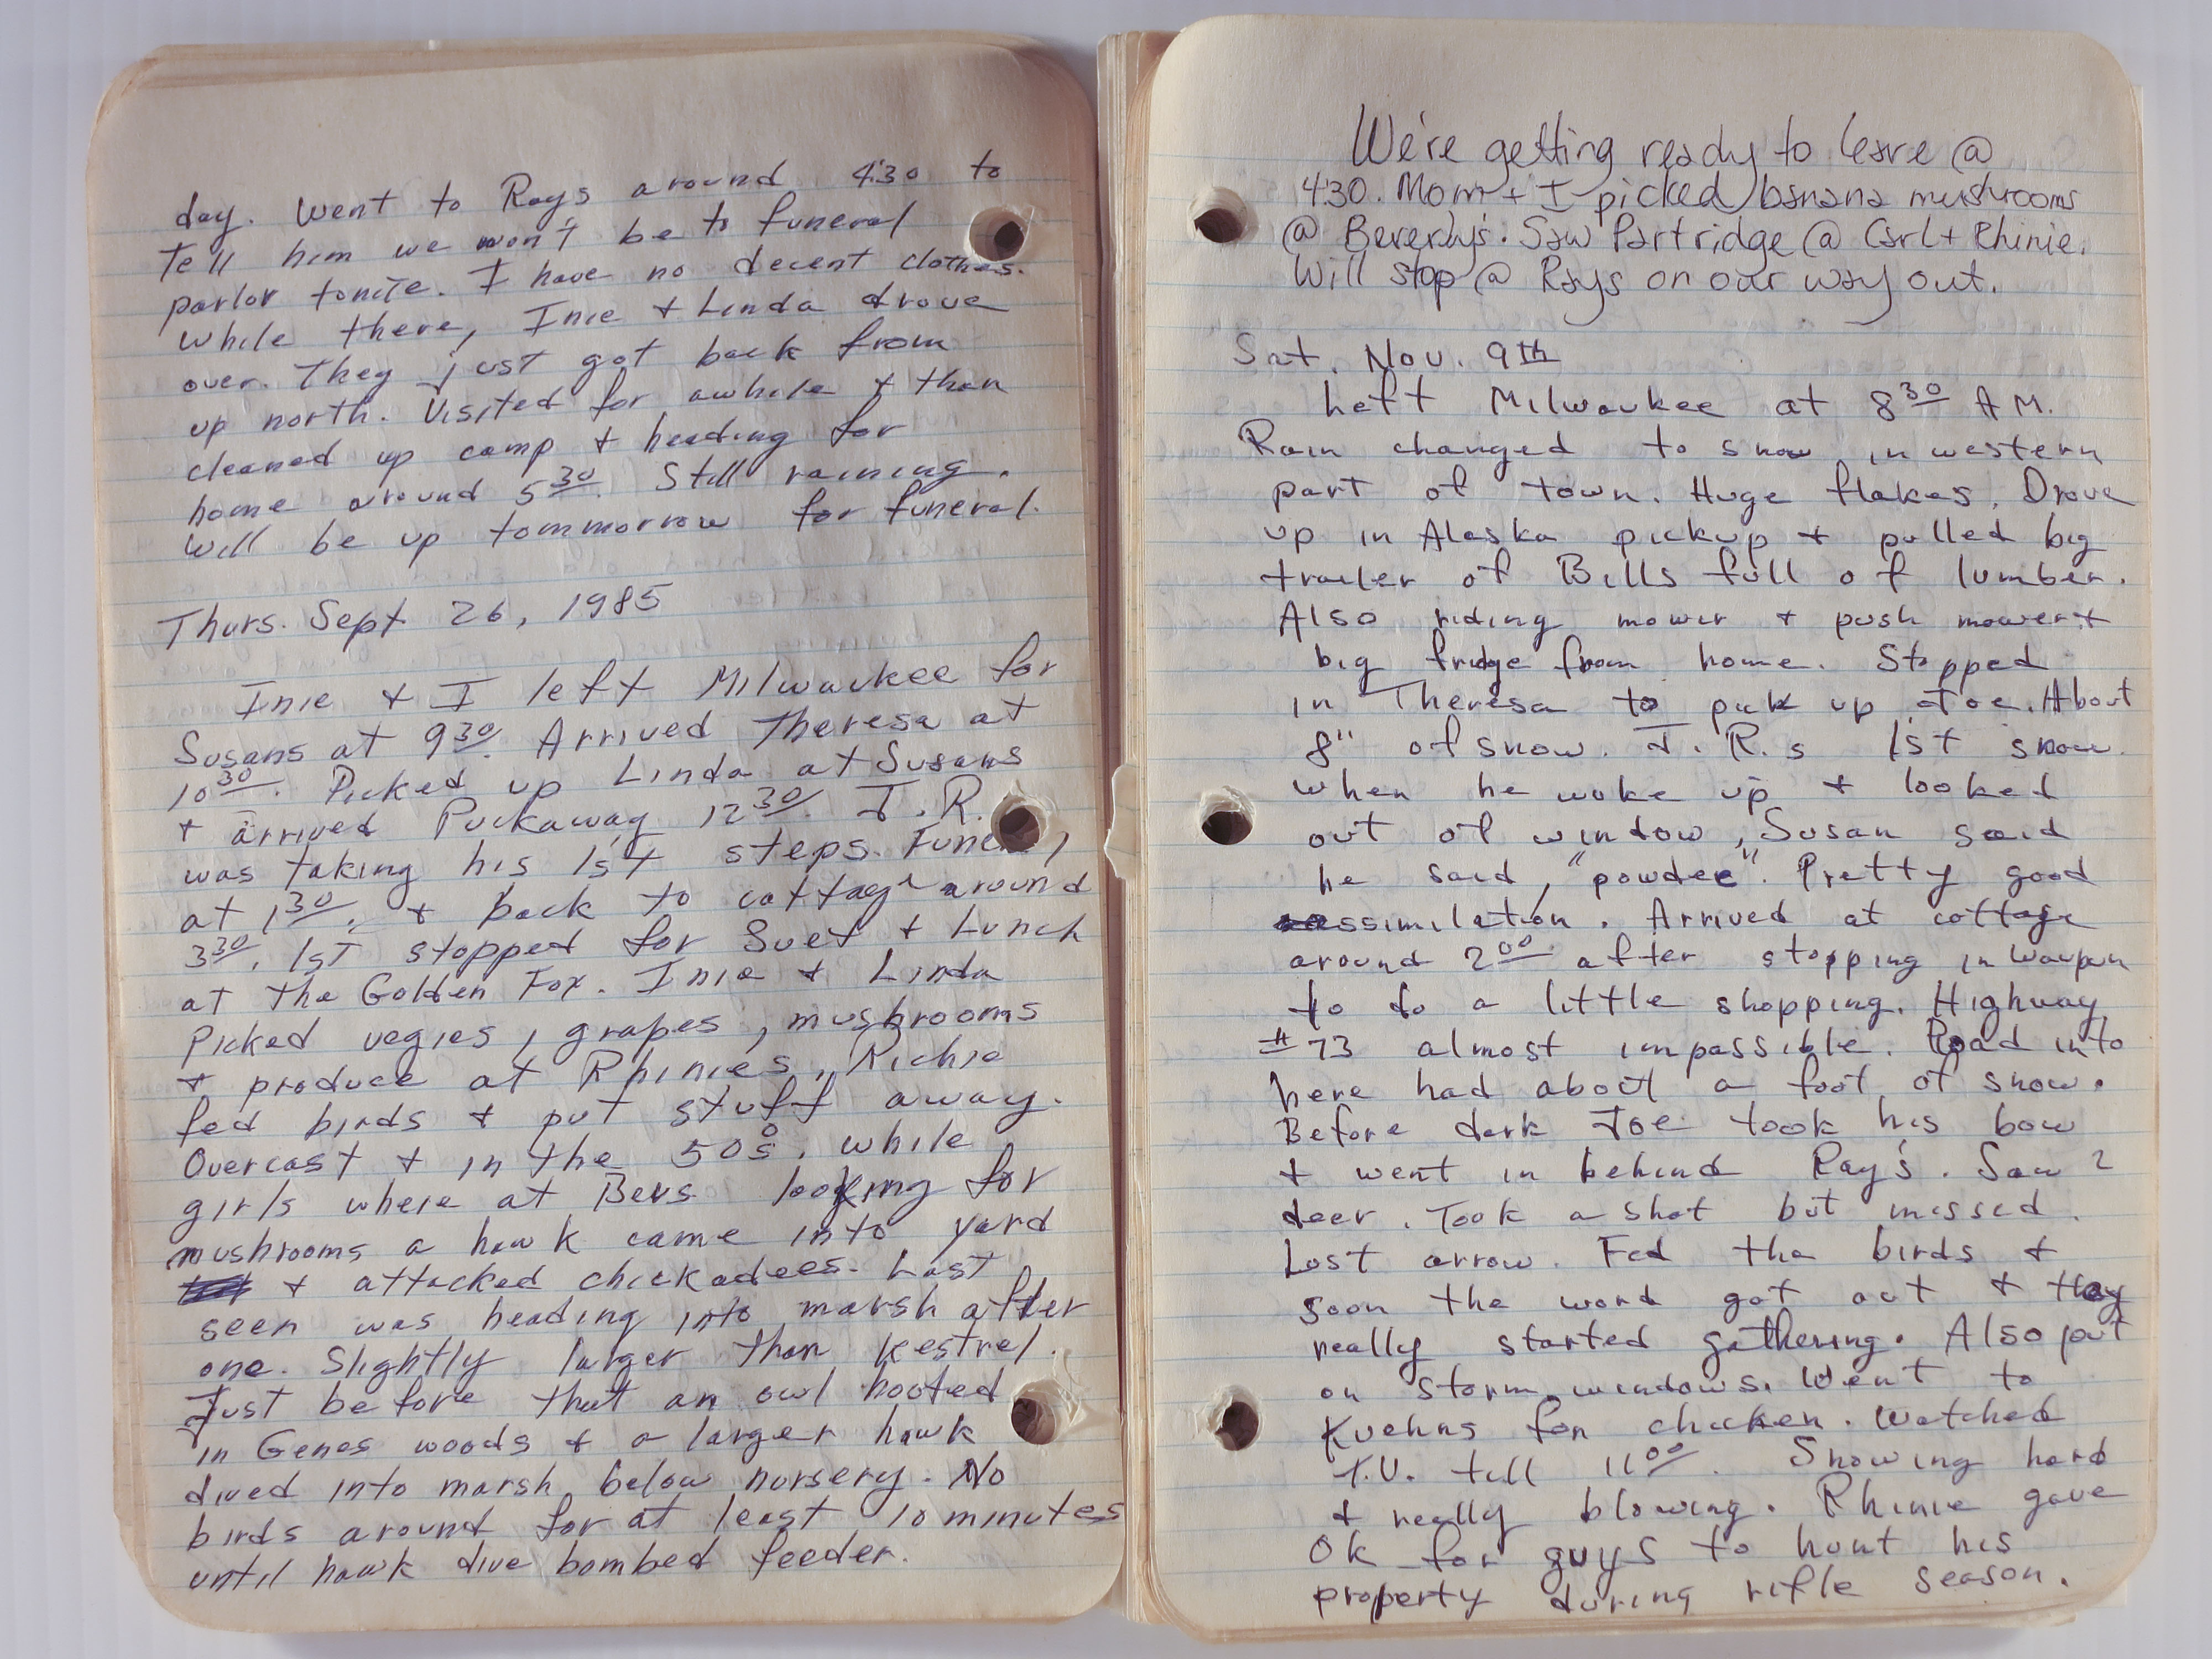 day. Went to Ray's around 4:30 to
Tell him we won't be to funeral
parlor tonite. I have no decent clothes.
While there, Inie & Linda drove
over. They just got back from
up north. Visited for awhile & than
cleaned up camp & heading for
home around 5 30. Still raining.
Will be up tommorrow for funeral.
Thurs. Sept 26, 1985
Inie & I left Milwaukee for
Susans at 9 30. Arrived Theresa at
10 30. Picked up Linda at Susans
& arrived Puckaway 12 30. J.R.
was taking his 1st steps. Funeral
at 1 30, & back to cottage around
3 30. 1st stopped for Suet & Lunch
at the Golden Fox. Inie & Linda
Picked vegies, grapes, mushrooms
& produce at Rhinies, Richie
fed birds & put stuff away.
Overcast & in the 50°s. While
girls where at Bevs looking for
mushrooms a hawk came into yard
& attacked chickadees. Last
seen was heading into marsh after
one. Slightly larger than Kestrel.
Just before that an owl hooted
in Genes woods & a larger hawk
dived into marsh below nursery. No
birds around for at least 10 minutes
until hawk dive bombed feeder.
We're getting ready to leave @
4:30. Mom + I picked banana mushrooms
@ Beverly's. Saw Partridge @ Carl + Rhinie.
Will stop @ Rays on our way out.
Sat. Nov. 9th
Left Milwaukee at 8 30 AM.
Rain changed to snow in western
part of town. Huge flakes. Drove
up in Alaska pickup & pulled big
trailer of Bills full of lumber.
Also riding mower & push mower &
big fridge from home. Stopped
in Theresa to pick up Joe. About
8" of snow. J.R.s 1st snow.
When he woke up & looked
out of window, Susan said
he said, "powdee". Pretty good
assimilation. Arrived at cottage
around 2 00 after stopping in Waupun
to do a little shopping. Highway
#73 almost impassible. Road into
here had about a foot of snow.
Before dark Joe took his bow
& went in behind Ray's. Saw 2
deer. Took a shot but missed.
Lost arrow. Fed the birds &
soon the word got out & they
really started gathering. Also put
on storm windows. Went to
Kuehns for chicken. Watched
T.V. till 11 00. Snowing hard
& really blowing. Rhinie gave
OK for guys to hunt his
property during rifle season.